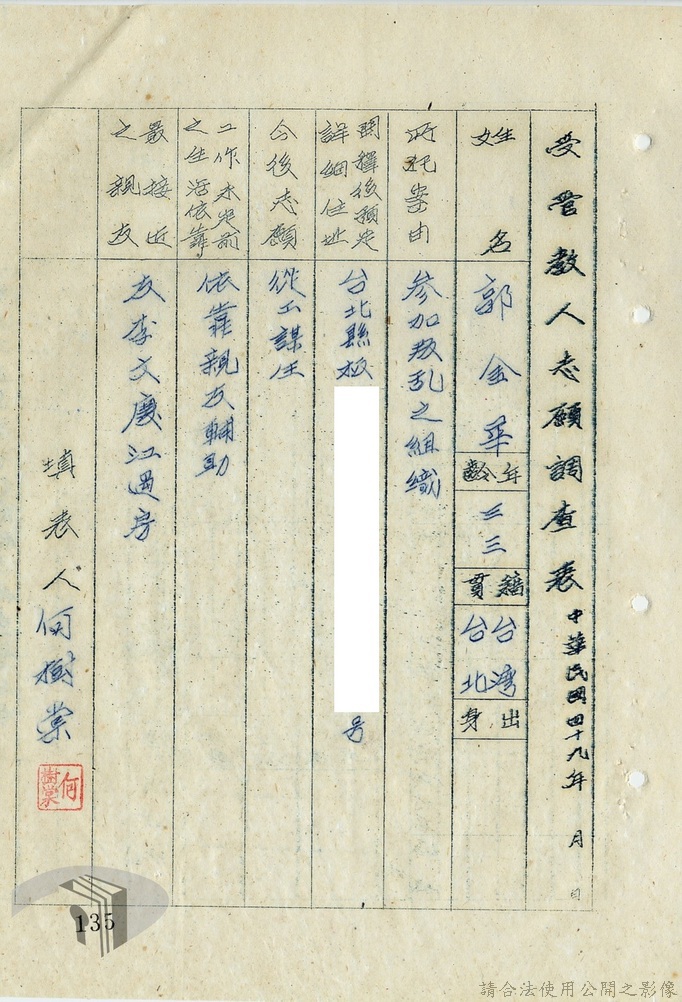 受管教人志願調查表 中華民國四十九年 月 日
姓名 郭金華 年齡 三三 籍貫 台灣台北 出身
所犯案由 參加叛乱之組織
開釋後預定詳細住址 台北縣板 号
今後志願 從工謀生
工作未定前之生活依靠 依靠親友輔助
最接近之親友 友李文慶江過房
填表人 何樹棠
何樹棠
135
請合法使用公開之影像